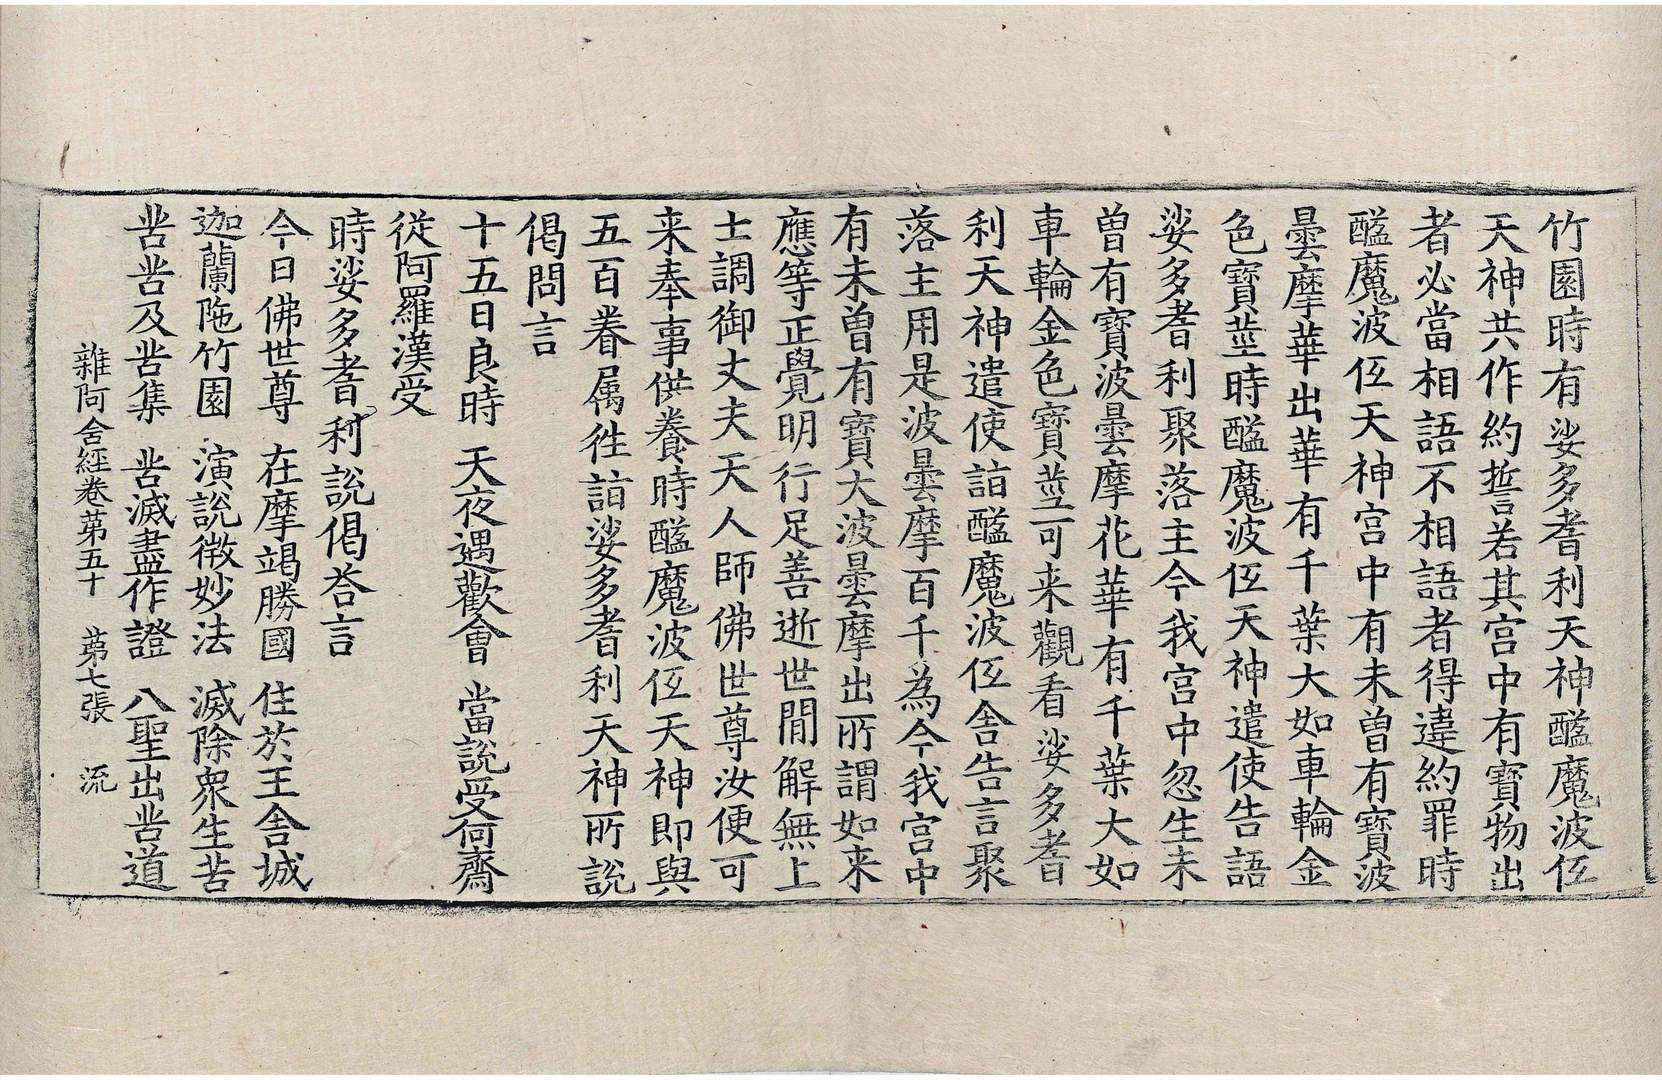 竹園時有娑多耆利天神醯魔波伍
天神共作約誓若其宫中有寶物出
者必當相語不相語者得違約罪時
醯魔波伍天神宫中有未曽有寶波
曇摩華出華有千葉大如車輪金
色寶莖時醯魔波伍天神遣使告語
娑多耆利聚落主今我宫中忽生未
曽有寶波曇摩花華有千葉大如
車輪金色寶莖可来觀看娑多耆
利天神遣使詣醯魔波伍舍告言聚
落主用是波曇摩百千為今我宫中
有未曽有寶大波曇摩出所謂如来
應等正覺明行足善逝世間解無上
士調御丈夫天人師佛世尊汝便可
来奉事供養時醯魔波伍天神即與
五百眷属徃詣娑多耆利天神所説
偈問言
十五日良時 天夜遇歡會 當説受何齋
從阿羅漢受
時娑多耆利説偈荅言
今日佛世尊 在摩竭勝國 住於王舍城
迦蘭陁竹園 演説微妙法 滅除衆生苦
苦苦及苦集 苦滅盡作證 八聖出苦道
雜阿含經卷第五十 第七張 流